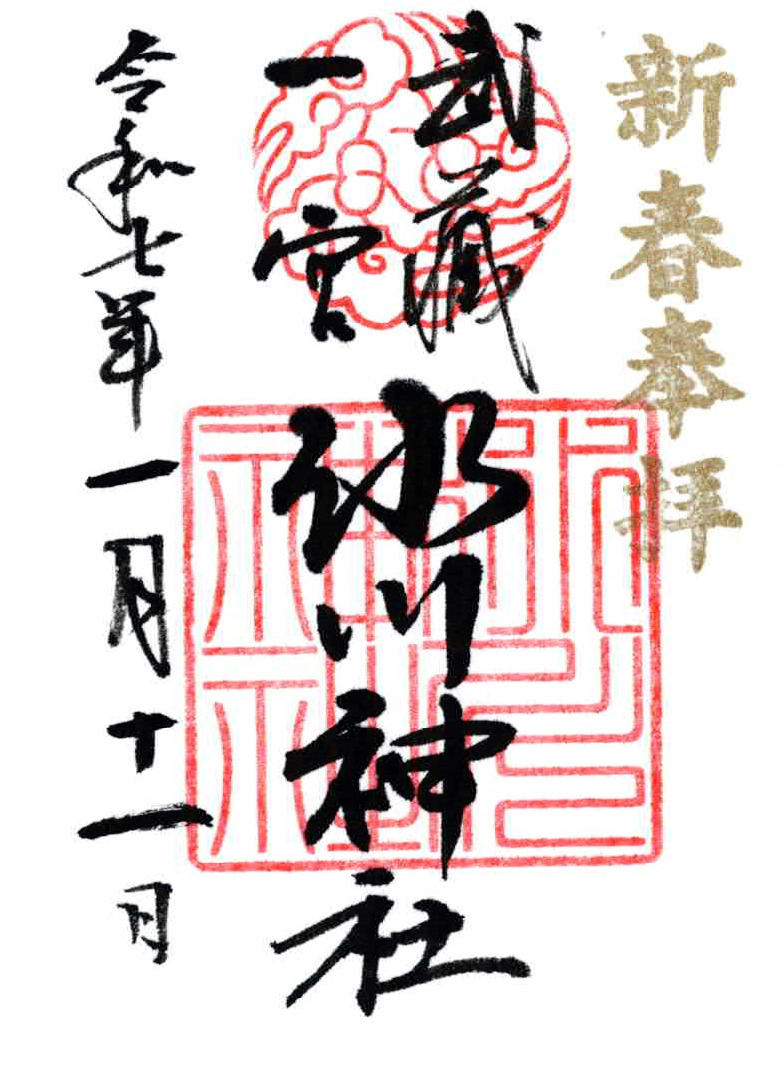 新春奉拝
武蔵
一宮
氷川神社
令和七年一月十一日